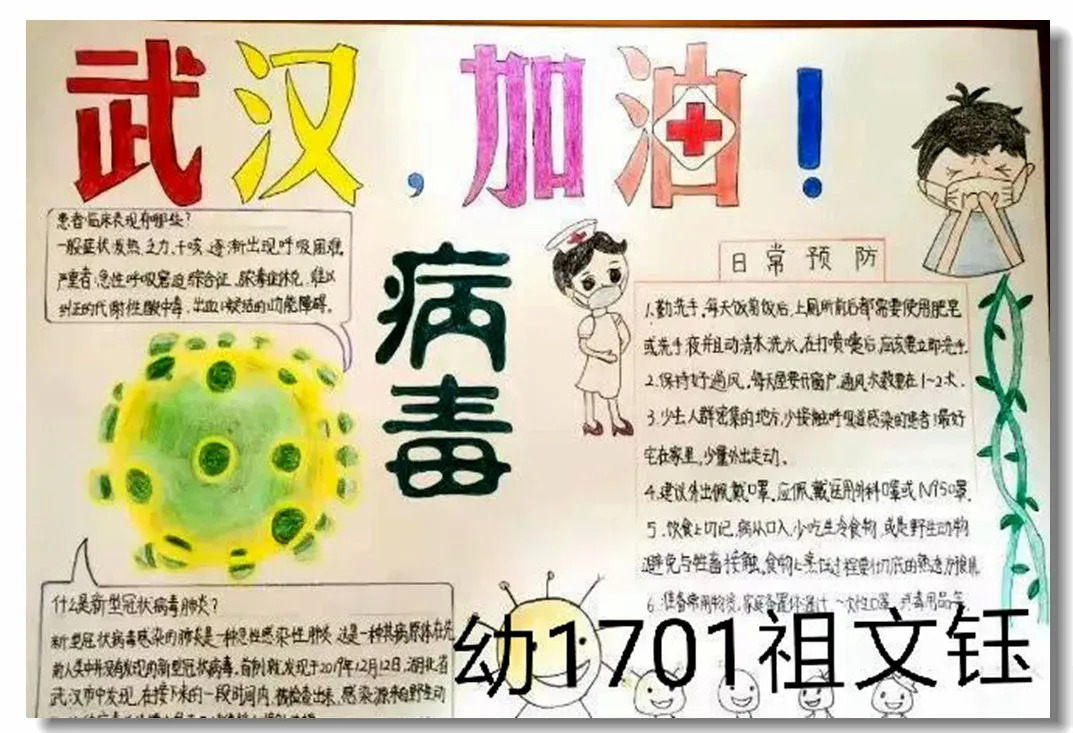 武汉,加油!
患者临床表现有哪些?
一般症状发热、乏力、干咳、逐渐出现呼吸困难,
严重者:急性呼吸窘迫综合征、脓毒症休克、难以
纠正的代谢性酸中毒、出血凝结的功能障碍。
病毒
日常预防
1.勤洗手,每天饭前饭后,上厕所前后都需要使用肥皂
或洗手液并且动清水洗水,在打喷嚏后,应该要立即洗手.
2.保持好通风,每天屋要开窗户,通风次数要在1~2次.
3.少去人群密集的地方,少接触呼吸道感染的患者!最好
宅在家里,少量外出走动。
4.建议外出佩戴口罩,应佩戴医用外科口罩或N95口罩.
5.饮食上切记,病从口入,少吃生冷食物,或是野生动物
避免与牲畜接触,食物上烹饪过程要彻底的熟透
6.准备常用物资,家庭备置体温计,一次性口罩,消毒用品等,
什么是新型冠状病毒肺炎?
新型冠状病毒感染的肺炎是一种急性感染性肺炎 这是一种其病原体在先
前人类中并没有发现的新型冠状病毒。首例就发现于2019年12月12日,湖北省
武汉市中发现,在接下来的一段时间内,被检查出来,感染源来自野生动
幼1701祖文钰